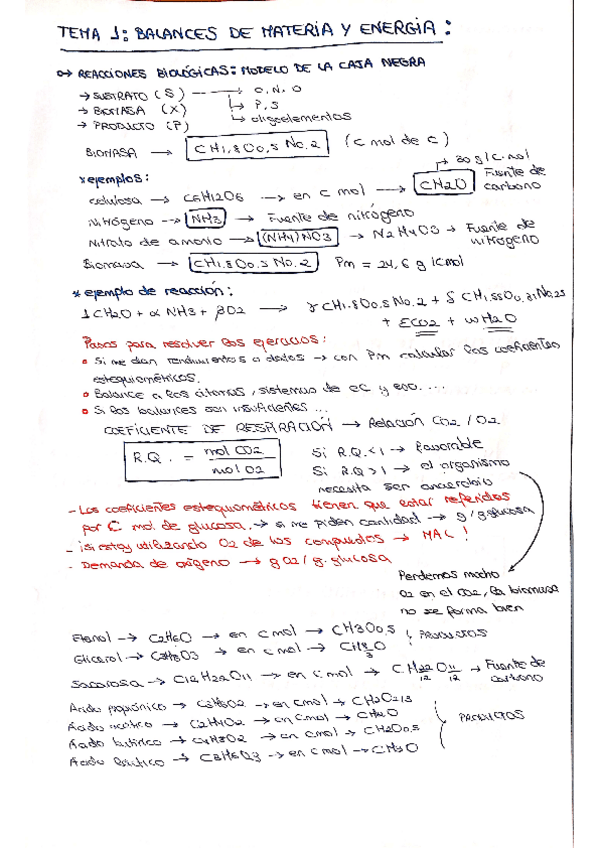 TEMA 1: BALANCES DE MATERIA Y ENERGIA:
REACCIONES BIOLÓGICAS: MODELO DE LA CAJA NEGRA
→ SUBSTRATO (S) → O, N, O
→ BIOMASA (X) → P, S
→ PRODUCTO (P) → oligoelementos
BIOMASA → CH1,8O0,5N0.2 (C mol de C)
* ejemplos: → 30 g/C.mol
celulosa → C6H12O6 → en C mol → CH2O Fuente de carbono
Nitrógeno → NH3 → Fuente de nitrógeno
Nitrato de amonio → (NH4)NO3 → N2H4O3 → Fuente de nitrógeno
Biomasa → CH1.8O0.5N0.2 Pm = 24,6 g/Cmol
* ejemplo de reacción:
1CH2O + α NH3 + βO2 → γCH1.8O0.5N0.2 + δ CH1.55O0.31N0.25
+ εCO2 + ωH2O
Pasos para resolver los ejercicios:
• Si me dan rendimientos o datos → con Pm calcular los coeficientes
estequiométricos.
• Balance a los átomos, sistemas de ec y eso....
• Si los balances son insuficientes ...
COEFICIENTE DE RESPIRACIÓN → Relación CO2 / O2
R.Q. = mol CO2 / mol O2
Si R.Q. < 1 → Favorable
Si R.Q > 1 → el organismo
necesita ser anaerobio
- Los coeficientes estequiométricos tienen que estar referidos
por C mol de glucosa. → si me piden cantidad → g/g glucosa
- ¡si estoy utilizando O2 de los compuestos → MAL!
- Demanda de oxígeno → g O2/g. glucosa
Perdemos mucho
O2 en el CO2, la biomasa
no se forma bien
Etanol → C2H6O → en C mol → CH3O0,5 PRODUCTOS
Glicerol → C3H8O3 → en C mol → CH8/3O
Sacarosa → C12H22O11 → en C mol → CH22/12O11/12 → Fuente de carbono
Ácido propiónico → C3H6O2 → en Cmol → CH2O2/3
Ácido acético → C2H4O2 → en Cmol → CH2O PRODUCTOS
Ácido butírico → C4H8O2 → en C mol → CH2O0,5
Ácido láctico → C3H6O3 → en C mol → CH2O